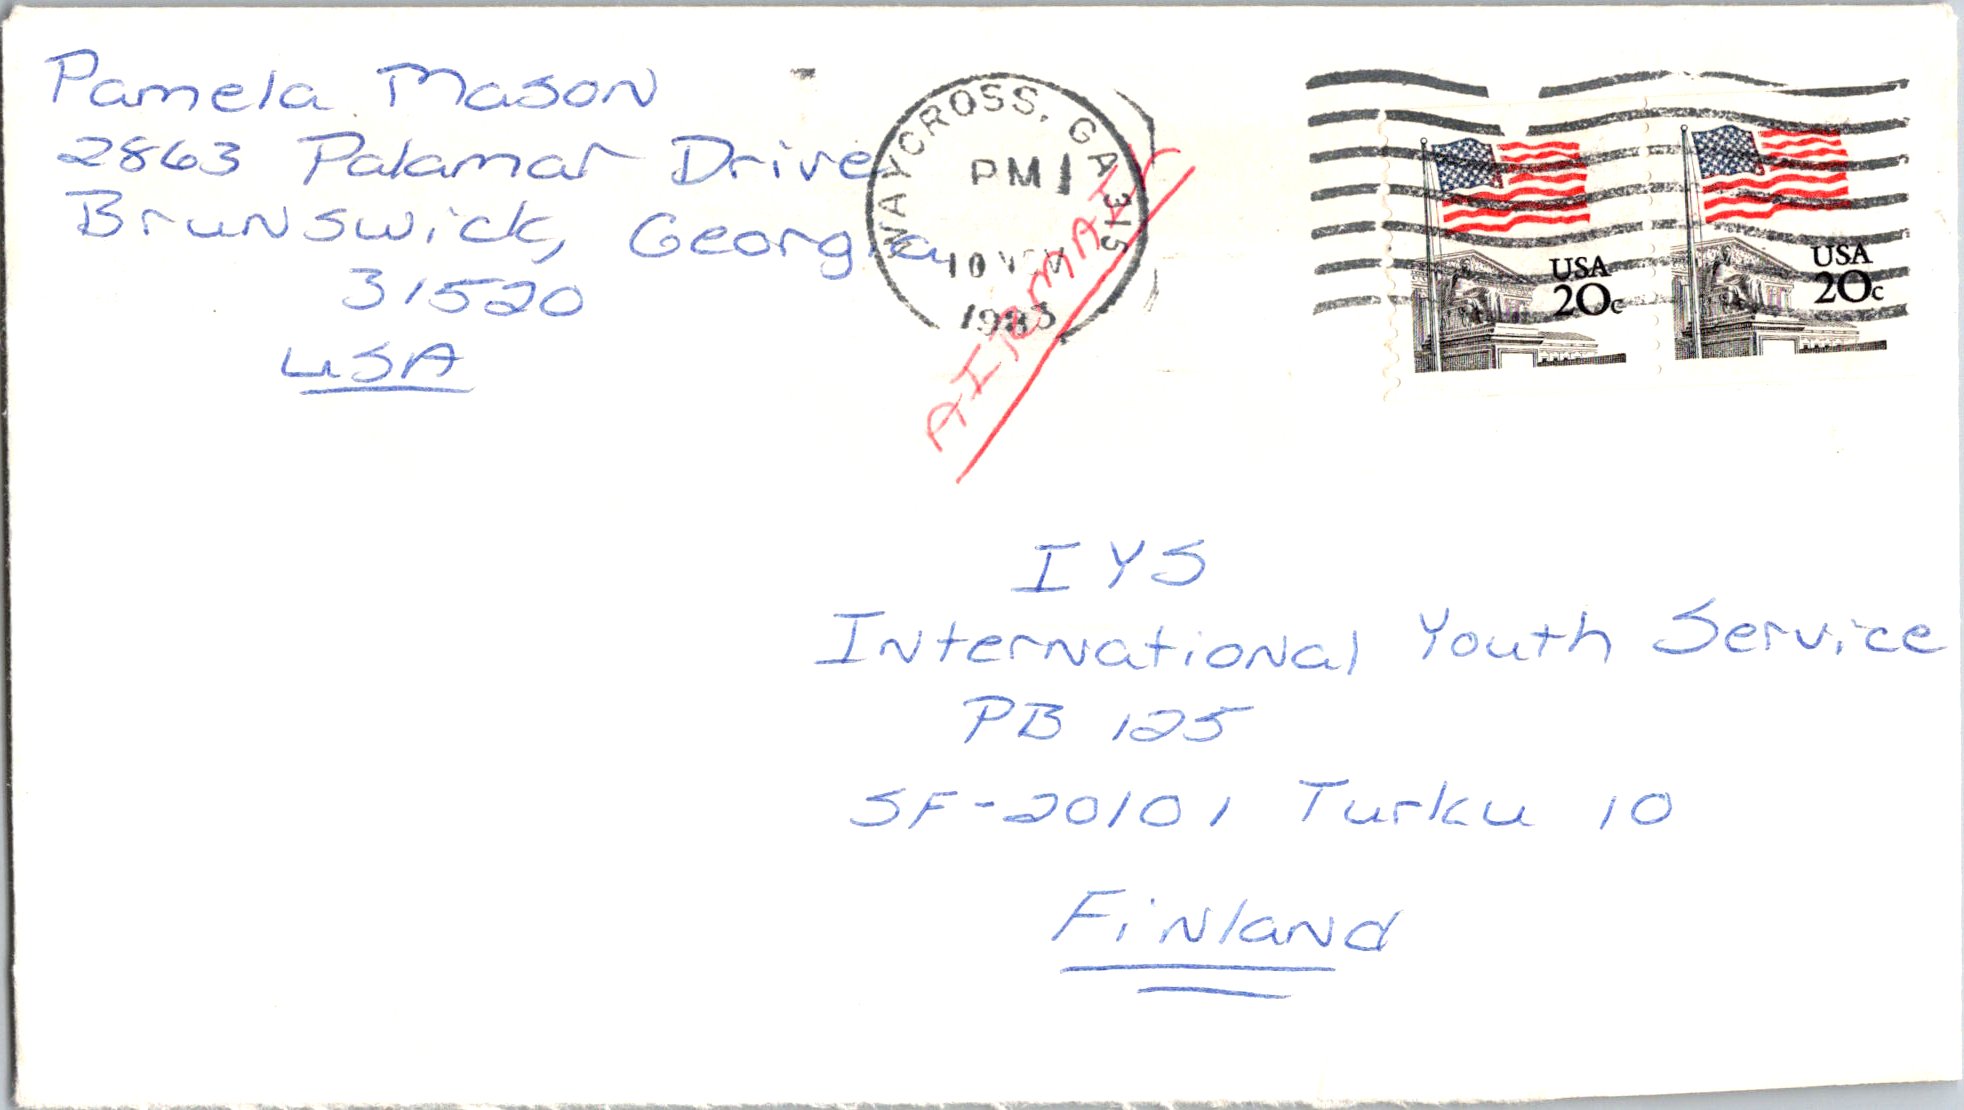 Pamela Mason
2863 Palamar Drive
Brunswick, Georgia
31520
USA
WAYCROSS, GA 315
PM
10 NOV
1983
AIRMAIL
USA
20c
USA
20c
IYS
International Youth Service
PB 125
SF-20101 Turku 10
Finland